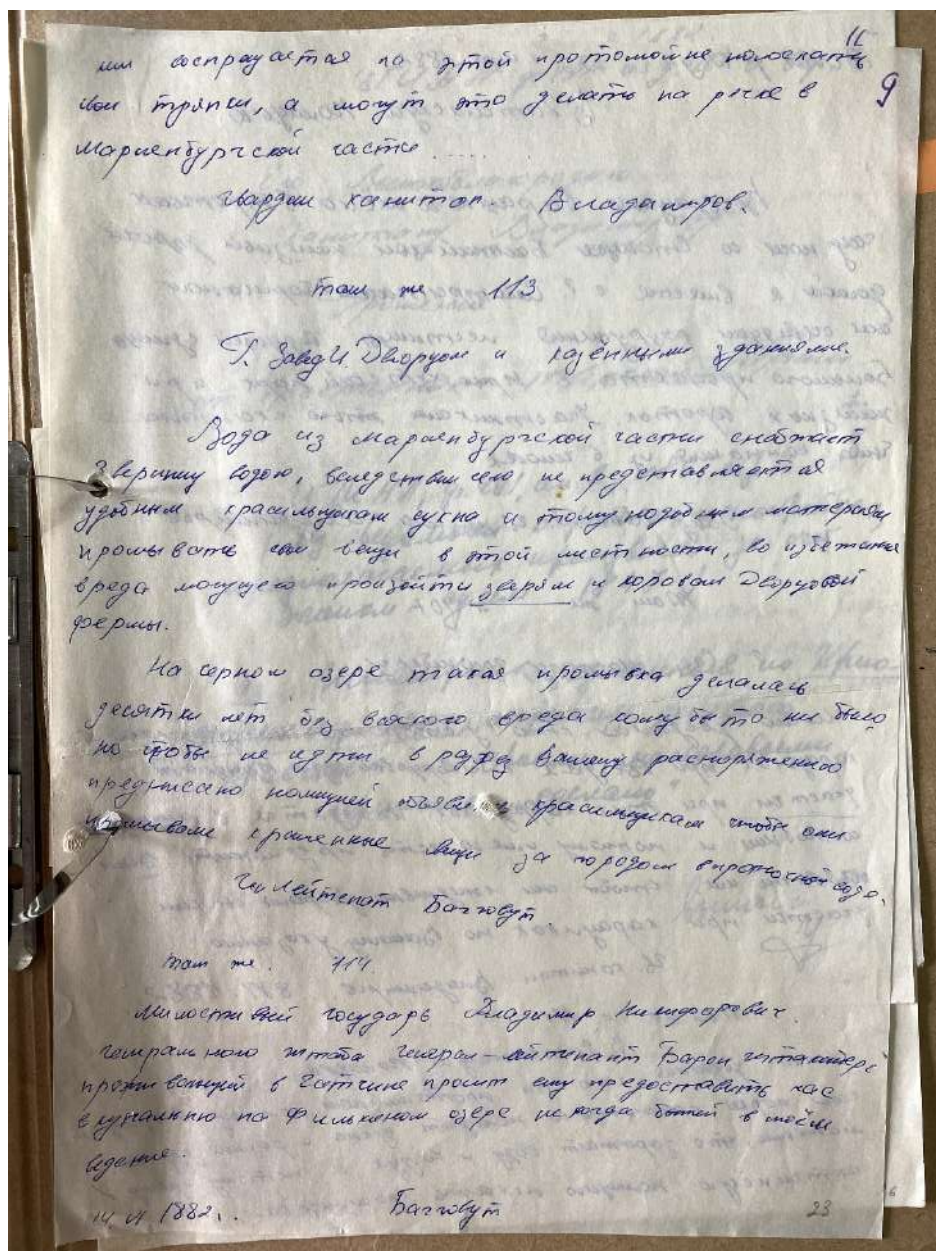 11
9
им воспрещается на этой протомойне полоскать
свои тряпки, а могут это делать на речке в
Мариенбургской части....
Гвардии капитан Владимиров.
Там же 113
Г. Завед. И. Дворцом и казёнными зданиями.
Вода из Мариенбургской части снабжает
Зверинец водою, вследствии сего, не представляется
удобным красильщикам сукна и тому подобным материям
промывать свои вещи в этой местности, во избежание
вреда могущего произойти зверям и коровам Дворцовой
фермы.
На черном озере такая промывка делалась
десятки лет без всякого вреда кому бы то ни было,
но чтобы не идти в разрез Вашему распоряжению
предписано полицией красильщикам чтобы они
промывали крашенные вещи за городом в проточной воде.
Ген Лейтенат Багговут.
Там же. 114.
Милостивый государь Владимир Никифорович.
генерального штаба генерал-лейтенант Барон
проживающий в Гатчине просит ему предоставить час
в купальню на Филькином озере некогда бывшей в моём
ведении.
14. VI 1882.. Багговут 23